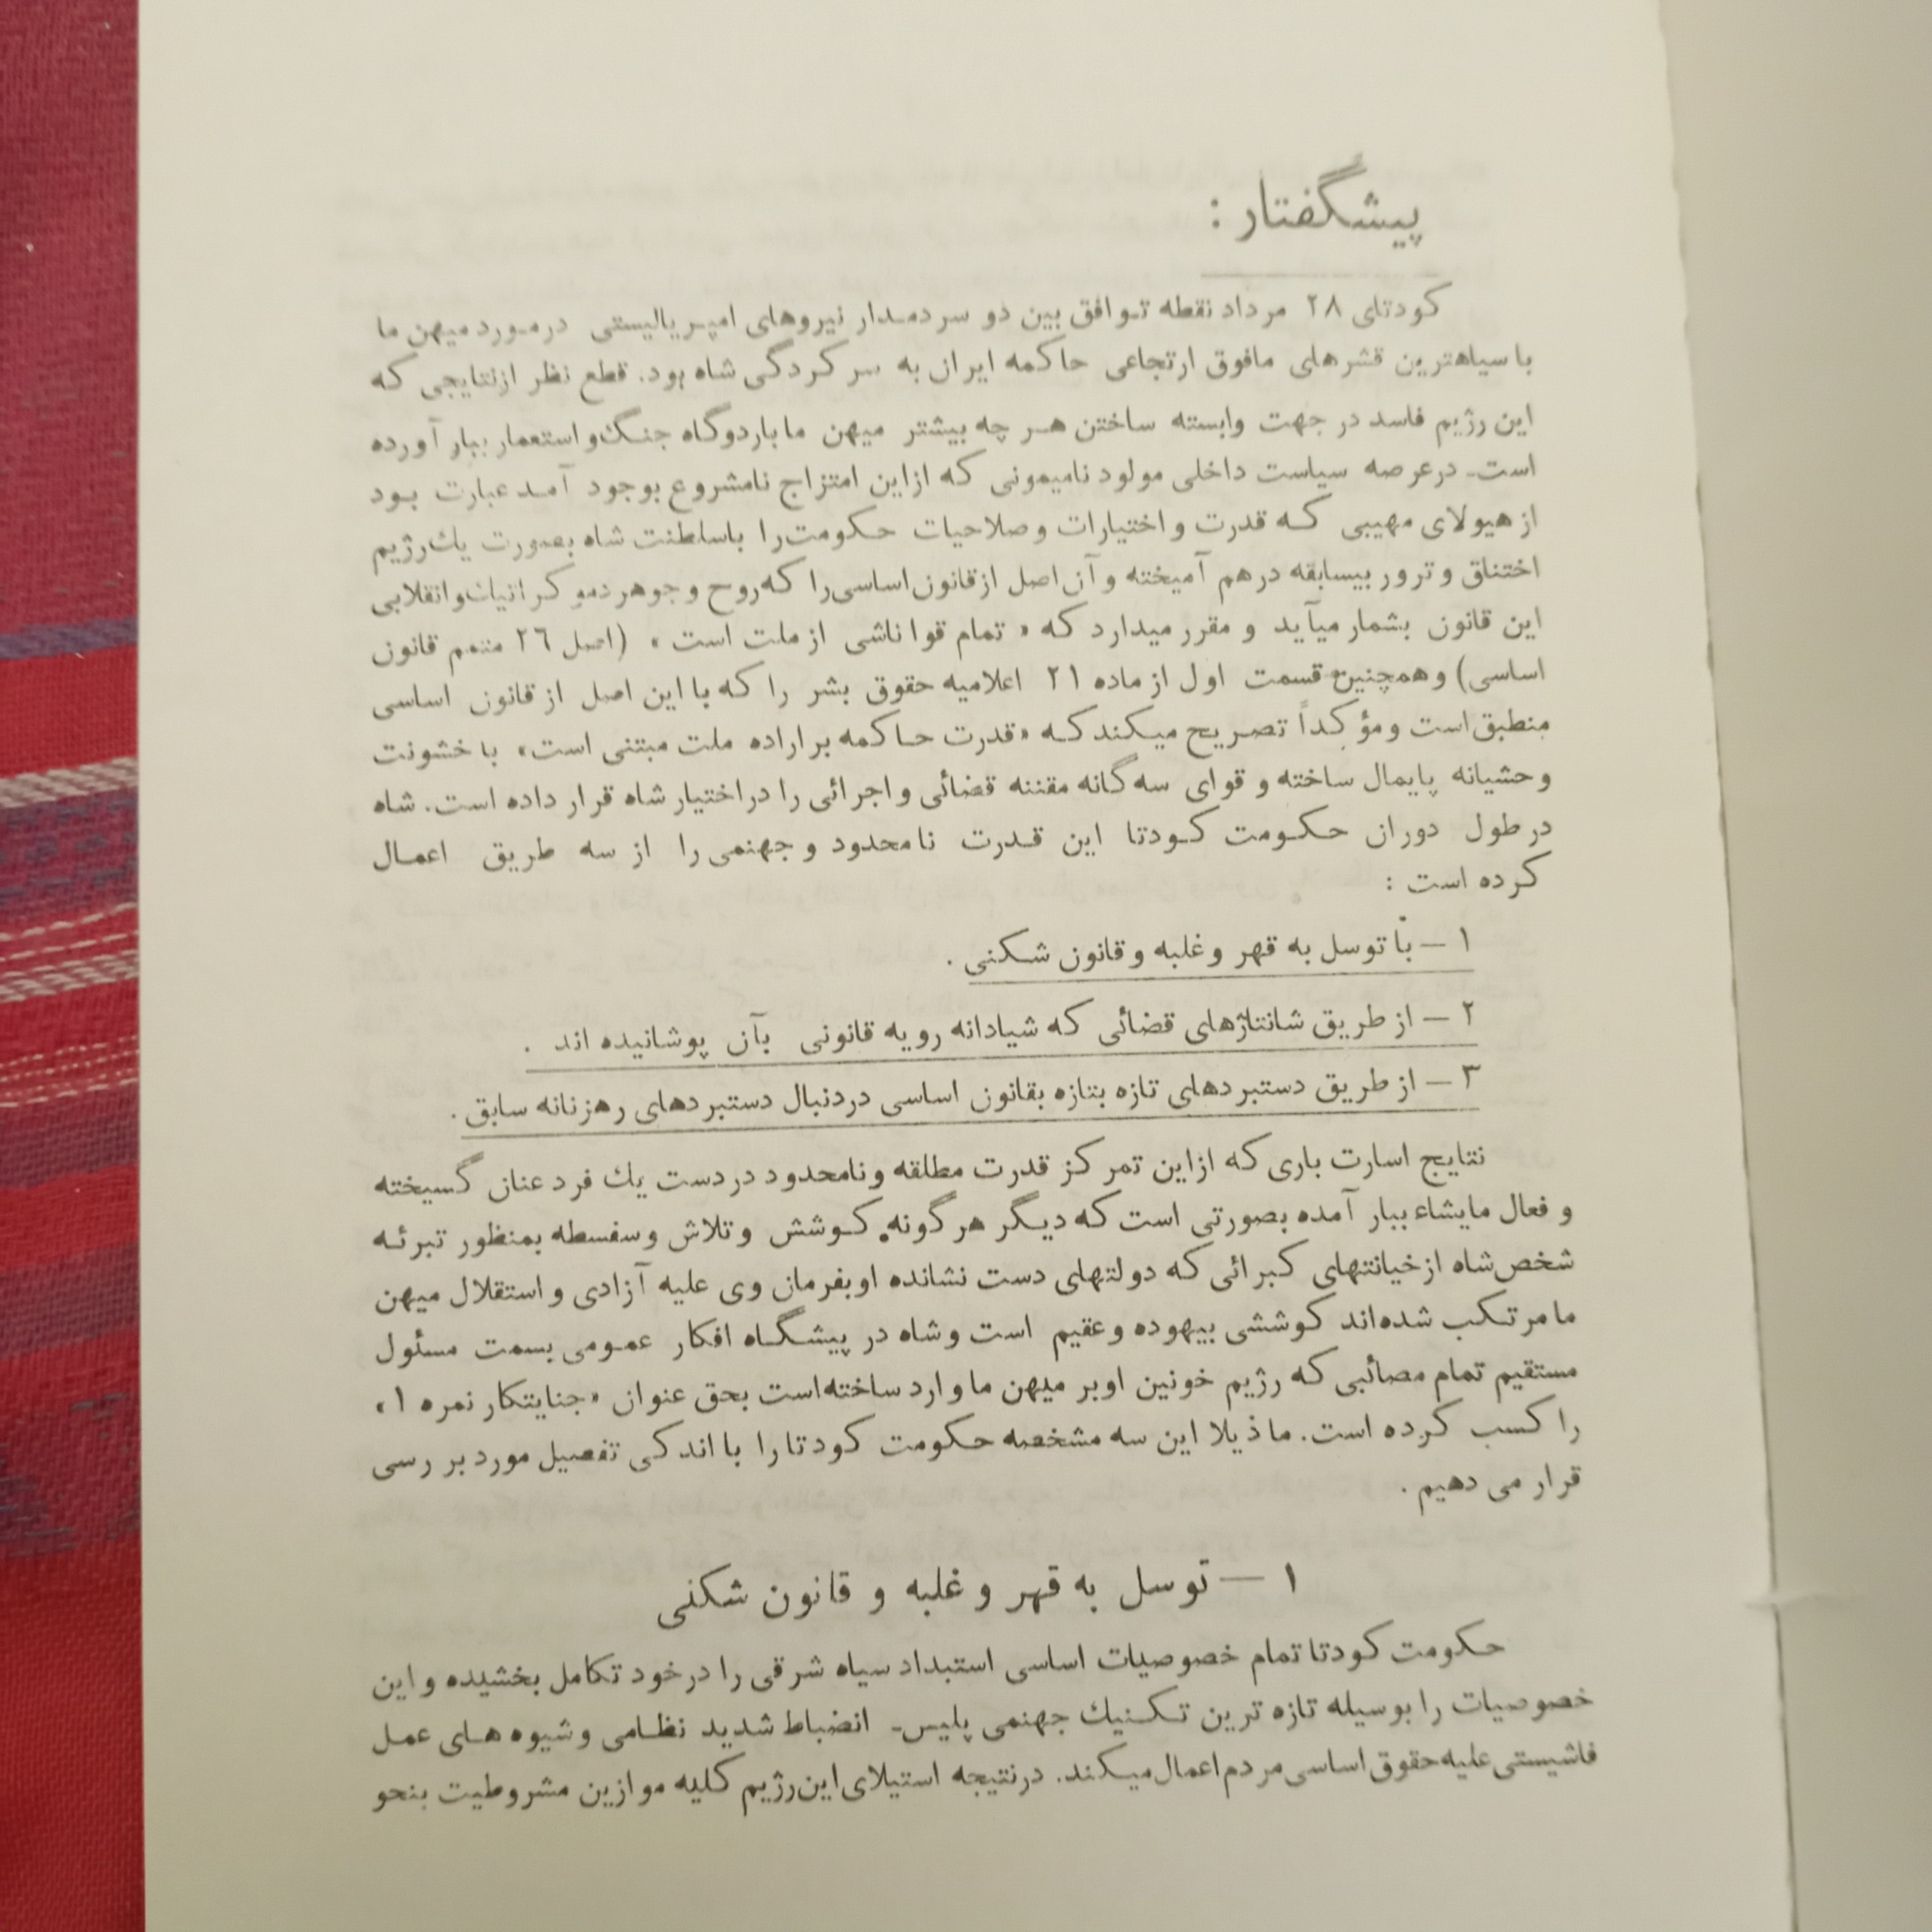 پیشگفتار :
کودتای ۲۸ مرداد نقطه توافق بین دو سردمدار نیروهای امپریالیستی درمورد میهن ما
با سیاهترین قشرهای مافوق ارتجاعی حاکمه ایران به سرکردگی شاه بود. قطع نظر ازنتایجی که
این رژیم فاسد در جهت وابسته ساختن هر چه بیشتر میهن ما باردوگاه جنگ‌و استعمار ببار آورده
است- درعرصه سیاست داخلی مولود نامیمونی که ازاین امتزاج نامشروع بوجود آمد عبارت بود
از هیولای مهیبی که قدرت و اختیارات و صلاحیات حکومت‌را باسلطنت شاه بصورت یك‌رژیم
اختناق و ترور بیسابقه درهم آمیخته و آن‌اصل ازقانون‌اساسی‌را که‌روح و جوهر دموکراتیك‌و انقلابی
این قانون بشمار میآید و مقرر میدارد که « تمام قوا ناشی از ملت است » (اصل ۲۶ متمم قانون
اساسی) و همچنین قسمت اول از ماده ۲۱ اعلامیه حقوق بشر را که با این اصل از قانون اساسی
منطبق‌است و مؤکداً تصریح میکند که «قدرت حاکمه بر اراده ملت مبتنی است» با خشونت
وحشیانه پایمال ساخته و قوای سه گانه مقننه قضائی و اجرائی را دراختیار شاه قرار داده است. شاه
در طول دوران حکومت کودتا این قدرت نامحدود و جهنمی را از سه طریق اعمال
کرده است :
۱ – با توسل به قهر و غلبه و قانون شکنی .
۲ – از طریق شانتاژهای قضائی که شیادانه رویه قانونی بآن پوشانیده اند .
۳ – از طریق دستبردهای تازه بتازه بقانون اساسی دردنبال دستبردهای رهزنانه سابق .
نتایج اسارت باری که ازاین تمرکز قدرت مطلقه و نامحدود در دست یك فرد عنان گسیخته
و فعال مایشاء ببار آمده بصورتی است که دیگر هر گونه کوشش و تلاش و سفسطه بمنظور تبرئه
شخص‌شاه ازخیانتهای کبرائی که دولتهای دست نشانده او بفرمان وی علیه آزادی و استقلال میهن
ما مرتکب شده‌اند کوششی بیهوده و عقیم است و شاه در پیشگاه افکار عمومی بسمت مسئول
مستقیم تمام مصائبی که رژیم خونین او بر میهن ما وارد ساخته‌است بحق عنوان «جنایتکار نمره ۱»
را کسب کرده است. ما ذیلا این سه مشخصه حکومت کودتا را با اندکی تفصیل مورد بر رسی
قرار می دهیم .
۱ – توسل به قهر و غلبه و قانون شکنی
حکومت کودتا تمام خصوصیات اساسی استبداد سیاه شرقی را در خود تکامل بخشیده و این
خصوصیات را بوسیله تازه ترین تکنیك جهنمی پلیس- انضباط شدید نظامی و شیوه های عمل
فاشیستی علیه‌حقوق اساسی مردم اعمال میکند. درنتیجه استیلای این‌رژیم کلیه موازین مشروطیت بنحو